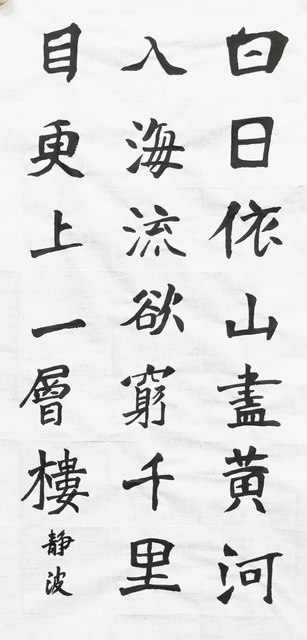 白日依山盡黄河
入海流欲窮千里
目更上一層樓
靜波